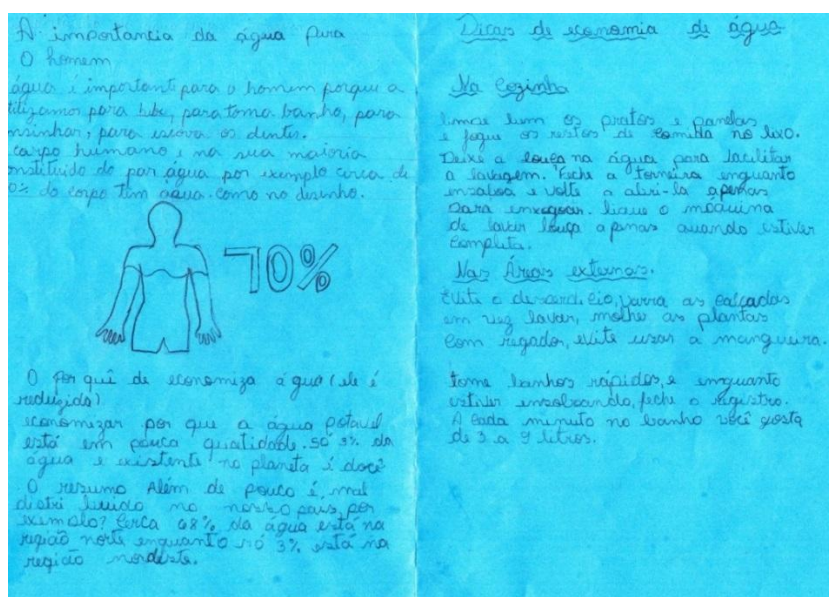 A importancia da água para
O homem
água é important para o homem porque a
tilizamos para bebe, para toma banho, para
nsinhar, para escova os dentes.
corpo humano é na sua maioria
onstituido do por água por exemplo cerca de
0% do corpo tem água como no desenho.
70%
O por quê de economiza água (ele é
reduzida).
economizar por que a água potavel
está em pouca quatidade. Só 3% da
água e existente no planeta é doce
O resumo Além de pouco é, mal
distri buido no nosso pais, por
exemplo? Cerca 68% da água está na
região norte enquanto só 3% está na
região nordeste.
Dicas de economia de água
Na Cozinha
limpe bem os pratos e panelas
e jogue os restos de comida no lixo.
Deixe a louça na água para facilitar
a lavagem. Feche a torneira enquanto
ensaboa e volte a abri-la apenas
para enxaguar. ligue o máquina
de lavar louça apenas quando estiver
completa.
Nas Áreas externas.
Evite o desperdicio, varra as calçadas
em vez lavar, molhe as plantas
com regador, evite usar a mangueira.
tome banhos rápidos, e enquanto
estiver ensaboando, feche o registro.
A cada minuto no banho você gasta
de 3 a 9 litros.